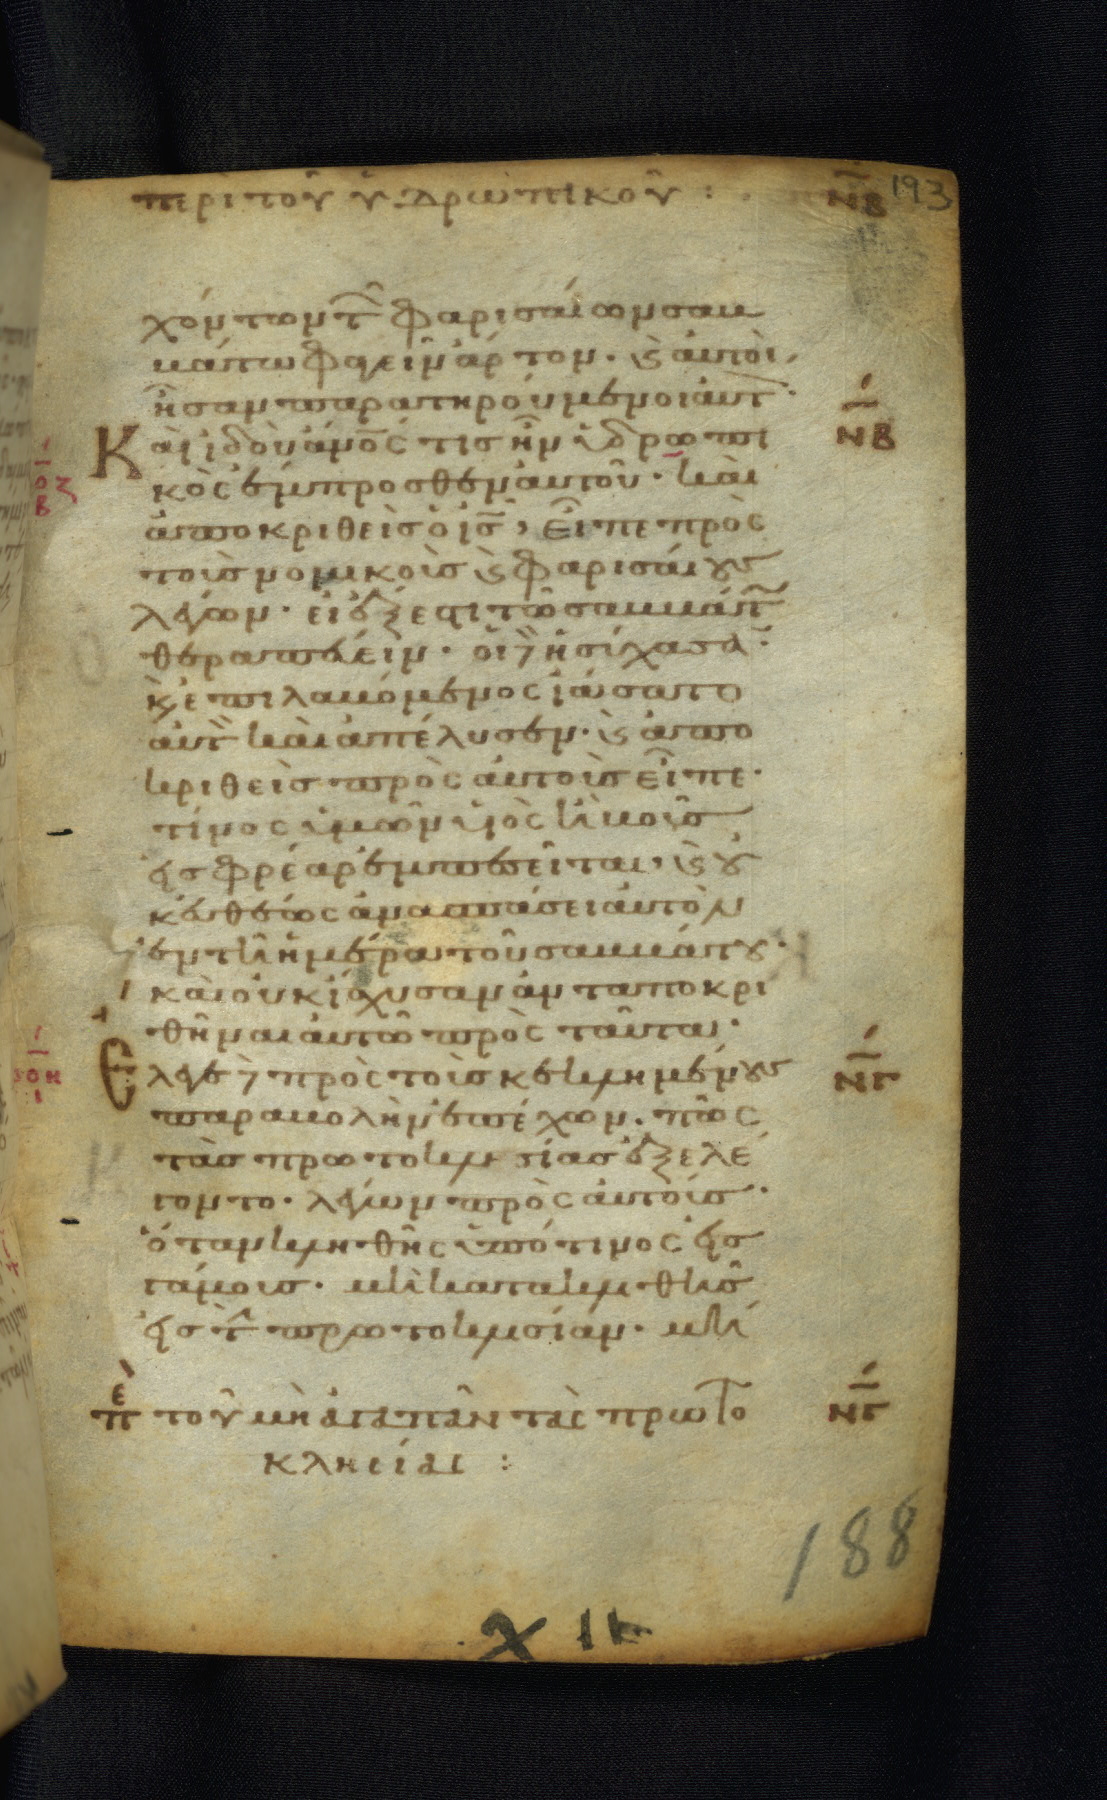 περὶ τοῦ ὑδρωπικοῦ : ΝΒ 193
χόντων τ̑ φαρισαίων σαβ
βάτω φαγεῖν ἄρτον · ϗ αὐτοὶ
ἦσαν παρατηρούμενοι αὐτ̀ ·
Καὶ ἰδοὺ ἄν̅ο̅ς τις ἦν ὑδρωπι ΝΒ
κὸς ἔμπροσθεν αὐτοῦ · καὶ
ἀποκριθεὶς ὁ ι̅ς̅, εἶπε πρὸς
τοὺς νομικοὺς ϗ φαρισαίους
λέγων · εἰ ἔξεστι τῶ σαββάτ
θεραπεύειν · οἱ δὲ ἡσύχασαν ·
ϗ ἐπιλαβόμενος ἰάσατο
αὐτ̀ καὶ ἀπέλυσεν · ϗ ἀπο
κριθεὶς πρὸς αὐτοὺς εἶπε ·
τίνος ὑμῶν υἱὸς ἢ βοῦς
εἰς φρέαρ ἐμπεσεῖται · ϗ οὐ
κ εὐθέως ἀνασπάσει αὐτὸν
ἐν τῆ ἡμέρα τοῦ σαββάτου ·
καὶ οὐκ ἴσχυσαν ἀνταποκρι
θῆναι αὐτῶ πρὸς ταῦτα ·
Ἔλεγε δὲ πρὸς τοὺς κεκλημένους ΝΓ
παραβολὴν ἐπέχων · πῶς
τὰς πρωτοκλησίας ἐξελέ
γοντο · λέγων πρὸς αὐτούς ·
ὅταν κληθῆς ὑπό τινος εἰς
γάμους · μὴ κατακλιθῆς
εἰς τ̀ πρωτοκλησίαν · μή
πε τοῦ μὴ ἀγαπᾶν τὰς πρωτο ΝΓ
κλησίας :
188